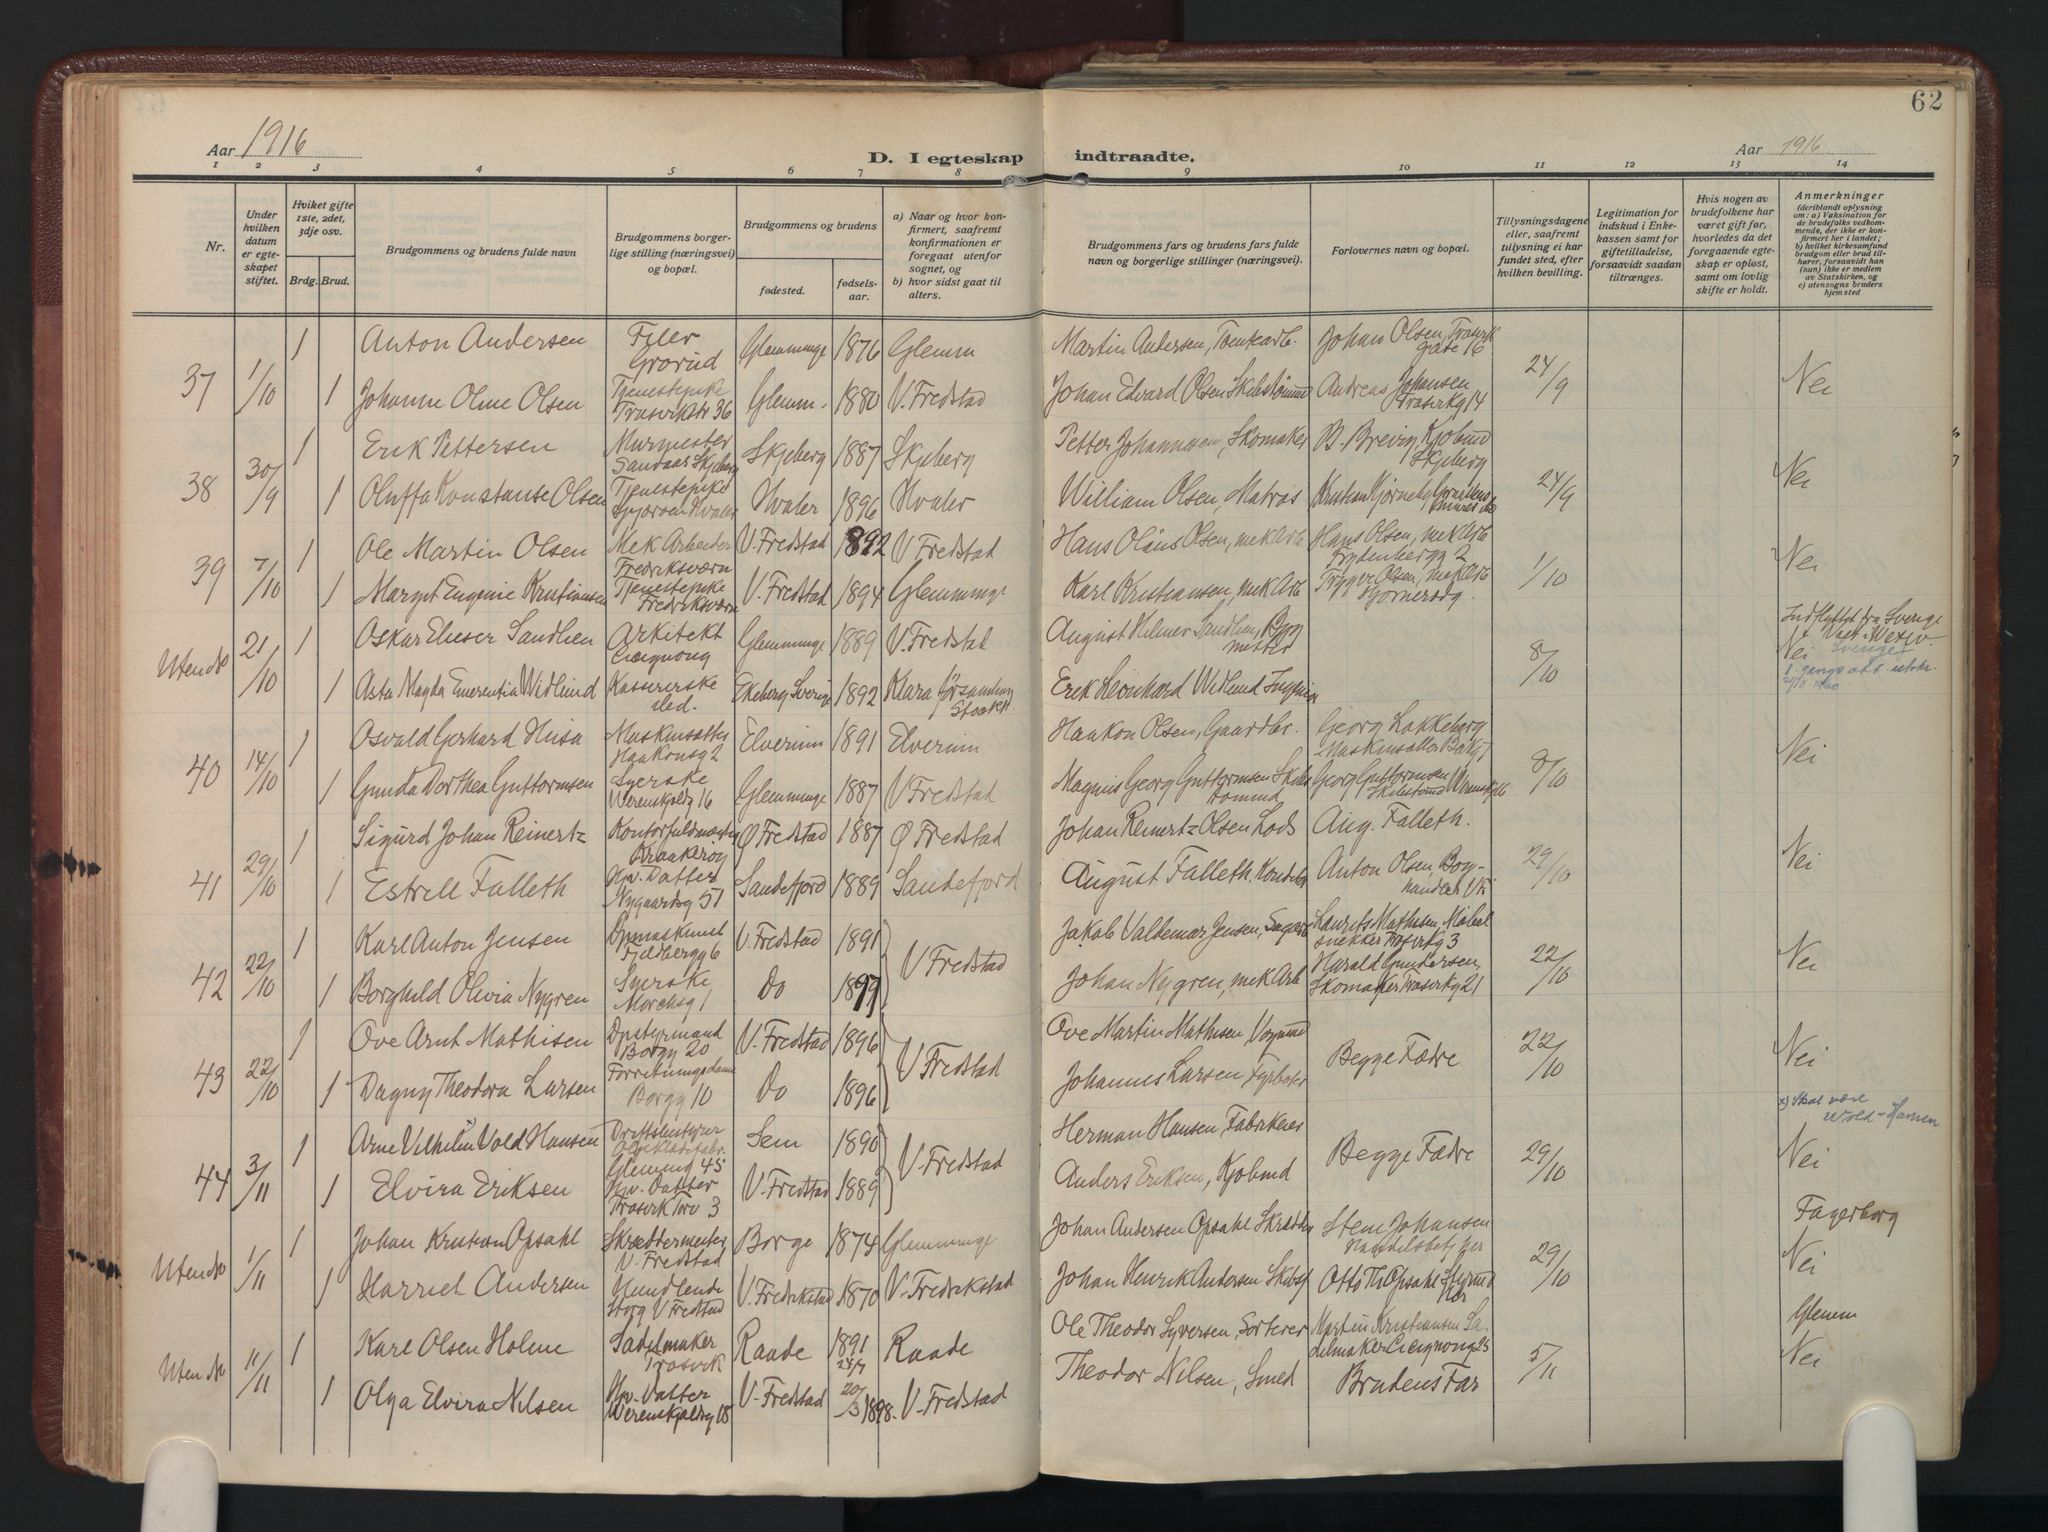 62
Aar 1916
D. I egteskap indtraadte.
Aar 1916
1 2 3 4 5 6 7 8 9 10 11 12 13 14
Nr.
Under hvilken datum er egteskapet stiftet.
Hviket gifte 1ste, 2det, 3dje osv.
Brdg. Brud.
Brudgommens og brudens fulde navn
Brudgommens borgerlige stilling (næringsvei) og bopæl.
Brudgommens og brudens
fødested.
fødselsaar.
a) Naar og hvor konfirmert, saafremt konfirmationen er foregaat utenfor sognet, og
b) hvor sidst gaat til alters.
Brudgommens fars og brudens fars fulde navn og borgerlige stillinger (næringsvei).
Forlovernes navn og bopæl.
Tillysningsdagene eller, saafremt tillysning ei har fundet sted, efter hvilken bevilling.
Legitimation for indskud i Enkekassen samt for giftetilladelse, forsaavidt saadan tiltrænges.
Hvis nogen av brudefolkene har været gift før, hvorledes da det foregaaende egteskap er opløst, samt om lovlig skifte er holdt.
Anmerkninger
(deriblandt oplysning om: a) Vaksination for de brudefolks vedkommende, der ikke er konfirmert her i landet; b) hvilket kirkesamfund brudgom eller brud tilhører, forsaavidt han (hun) ikke er medlem av Statskirken, og c) utensogns bruders hjemsted
37 1/10 1 Anton Andersen Filer Grorud Glemminge 1876 Glemm Martin Andersen, Johan Olsen, Trosvik Gade 16 24/9 Nei
1 Johanne Oline Olsen Tjenestepike Trosvikstr 36 Glemm. 1880 V. Fredstad Johan Edvard Olsen Skibstømmd Andreas Johansen Trosvikg 14
38 30/9 1 Erik Pettersen Murmester Sandaas Skjeberg Skjeberg 1887 Skjeberg Petter Johannesen, Skomaker B. Brevig, Kjøbmd Skjeberg 24/9 Nei
1 Oluffa Konstanse Olsen Tjenestepike Hvaler Hvaler 1896 Hvaler William Olsen, Matros Kristian
39 7/10 1 Ole Martin Olsen Mek Arbeider Fredriksværn V. Fredstad 1892 V Fredstad Hans Olaus Olsen, mek Arb Hans Olsen, mek Arb Frydenbergg 2 1/10 Nei
1 Margit Eugenie Kristiansen Tjenestepike Fredriksværn V. Fredstad 1894 Glemminge Karl Kristiansen, mek Arb Trygve Olsen, mek Arb
Utenbs 21/10 1 Oskar Elieser Sandlien Arkitekt Cicignong Glemminge 1889 V. Fredstad August Hilmer Sandlien, Bygmester 8/10 Indflyttet fra Sverige Nei
1 Asta Magda Emerentia Widlund Kassererske sted. Ekeberg Sverige 1892 Klara församling Stockh. Erik Leonhard Widlund Ingeniør
40 14/10 1 Osvald Gerhard Huisa Maskinsætter Haakonsg 2 Elverum 1891 Elverum Haakon Olsen, Gaardbr. Georg Lakkeberg Maskinsætter 8/10 Nei
1 Gunda Dorthea Guttormsen Syerske Werenskjoldg 16 Glemminge 1887 V Fredstad Magnus Georg Guttormsen Skibstømmd Georg Guttormsen Skibstømd
41 29/10 1 Sigurd Johan Reinertz Kontorfuldmægtig Kraakerøy Ø Fredstad 1887 Ø Fredstad Johan Reinertz Olsen Lods Aug. Falleth. 29/10 Nei
1 Estrell Falleth Hjv. Datter Nygaardsg 51 Sandefjord 1889 Sandefjord August Falleth, Anton Olsen, Boghandler
42 22/10 1 Karl Anton Jensen Fjeldbergg 6 V. Fredstad 1891 V Fredstad Jakob Valdemar Jensen, Laurits Mathisen, Møbelsnekker Trosvikg 3 22/10 Nei
1 Borghild Olivia Nygren Syerske Mørchsg 1 Do 1897 Johan Nygren, mek Arb Harald Gundersen, Skomaker Trosvikg 21
43 22/10 1 Ove Arnt Mathisen Dpstyrmand Borgg 20 V. Fredstad 1896 V Fredstad Ove Martin Mathisen Begge Fædre 22/10 Nei
1 Dagny Theodora Larsen Forretningsdame Borgg 10 Do 1896 Johannes Larsen Fyrbøter
44 3/11 1 Arne Vilhelm Vold Hansen Driftsbestyrer Glemmg 45 Sem 1890 V. Fredstad Herman Hansen, Fabrikeier Begge Fædre 29/10 x) Skal være Wold-Hansen Nei
1 Elvira Eriksen Hjv. Datter Trosvik Torv 3 V. Fredstad 1889 Anders Eriksen, Kjøbmd
Utenbs 1/11 1 Johan Kristian Opsahl Skræddermester V. Fredstad Borge 1874 Glemminge Johan Andersen Opsahl Skrædder Johansen 29/10 Fagerborg Nei
1 Harriet Andersen Storg V Fredstad V. Fredrikstad 1870 V. Fredrikstad Johan Henrik Andersen Otto Th Opsahl Styrmd
Utenbs 11/11 1 Karl Olsen Holme Sadelmaker Trosvik Raade 1891 24/7 Raade Ole Theodor Syversen, Sorterer Martin Kristiansen Sadelmaker Cicignong 25 5/11 Glemm Nei
1 Olga Elvira Nilsen Hjv. Datter Werenskjoldsg 18 V. Fredstad 20/3 1898. V. Fredstad Theodor Nilsen, Smed Brudens Far